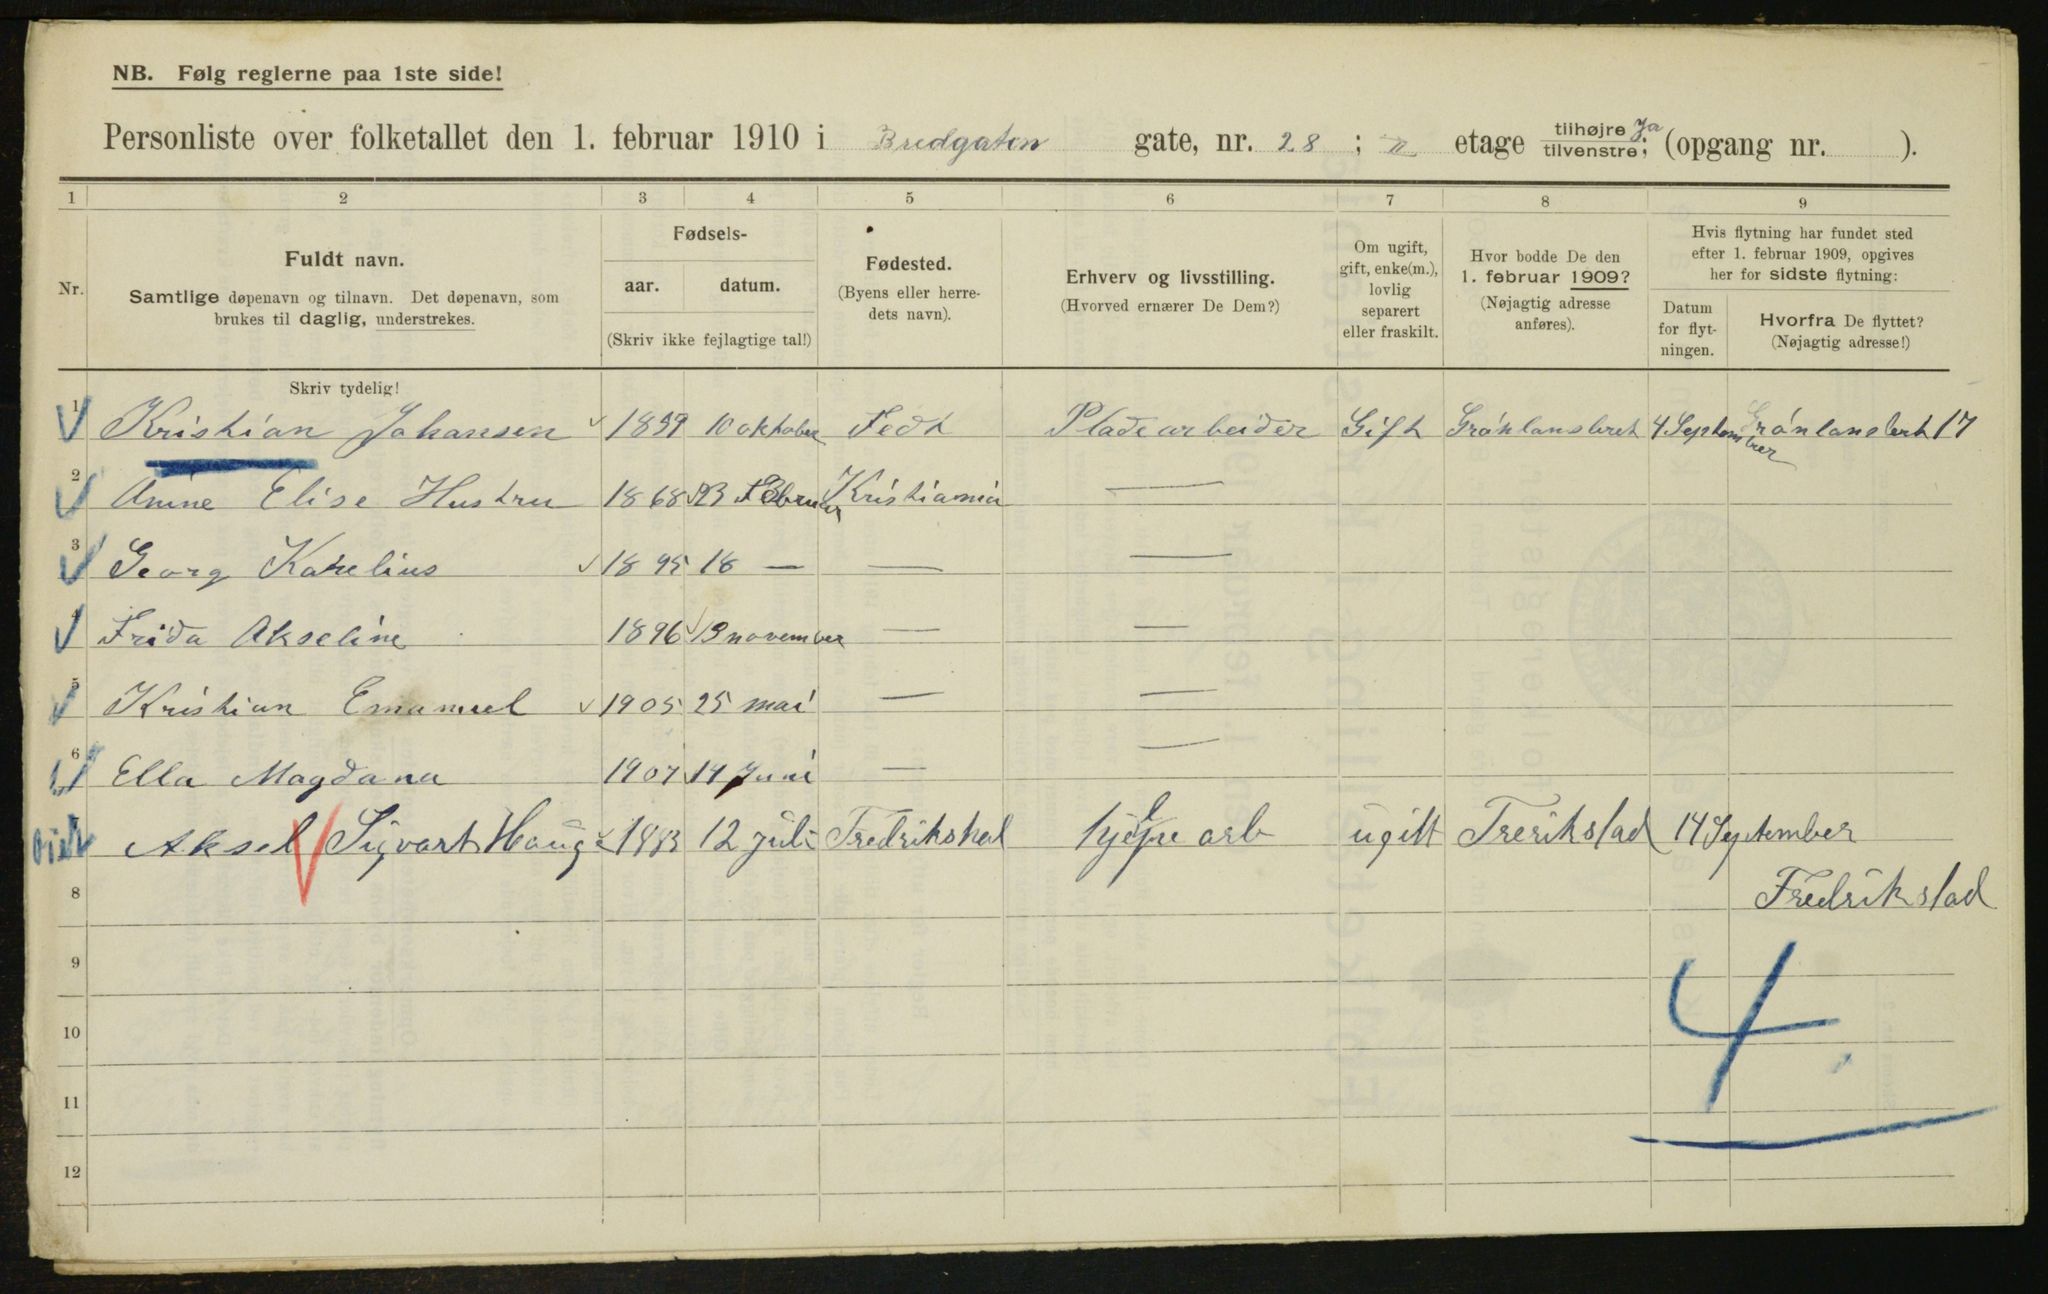 NB. Følg reglerne paa 1ste side!
Personliste over folketallet den 1. februar 1910 i Bredgaten gate, nr. 28 ; II etage tilhøjre Ja tilvenstre; (opgang nr. ).
1 2 3 4 5 6 7 8 9
Nr.
Fuldt navn.
Samtlige døpenavn og tilnavn. Det døpenavn, som
brukes til daglig, understrekes.
Fødsels-
aar. datum.
(Skriv ikke fejlagtige tal!)
Fødested.
(Byens eller herre-
dets navn).
Erhverv og livsstilling.
(Hvorved ernærer De Dem?)
Om ugift,
gift, enke(m.),
lovlig
separert
eller fraskilt.
Hvor bodde De den
1. februar 1909?
(Nøjagtig adresse
anføres).
Hvis flytning har fundet sted
efter 1. februar 1909, opgives
her for sidste flytning:
Datum
for flyt-
ningen.
Hvorfra De flyttet?
(Nøjagtig adresse!)
Skriv tydelig!
1 Kristian Johansen 10 oktober Fedt Pladearbeider Gift Grönlansleret 4 September Grönlanslert 17
2 Anine Elise Hustru 1868 23 Februar Kristiania —
3 Georg Karelius 1895 18 — — —
4 Frida Akseline 1896 13 november — —
5 Kristian Emanuel 1905 25 mai — —
6 Ella Magdana 1907 14 Juni — —
Aksel Sigvart Haug 1883 12 juli Fredrikshal hjelpe arb ugift Frerikstad 14 September
8 Fredrikstad
9
10
11
12
4.